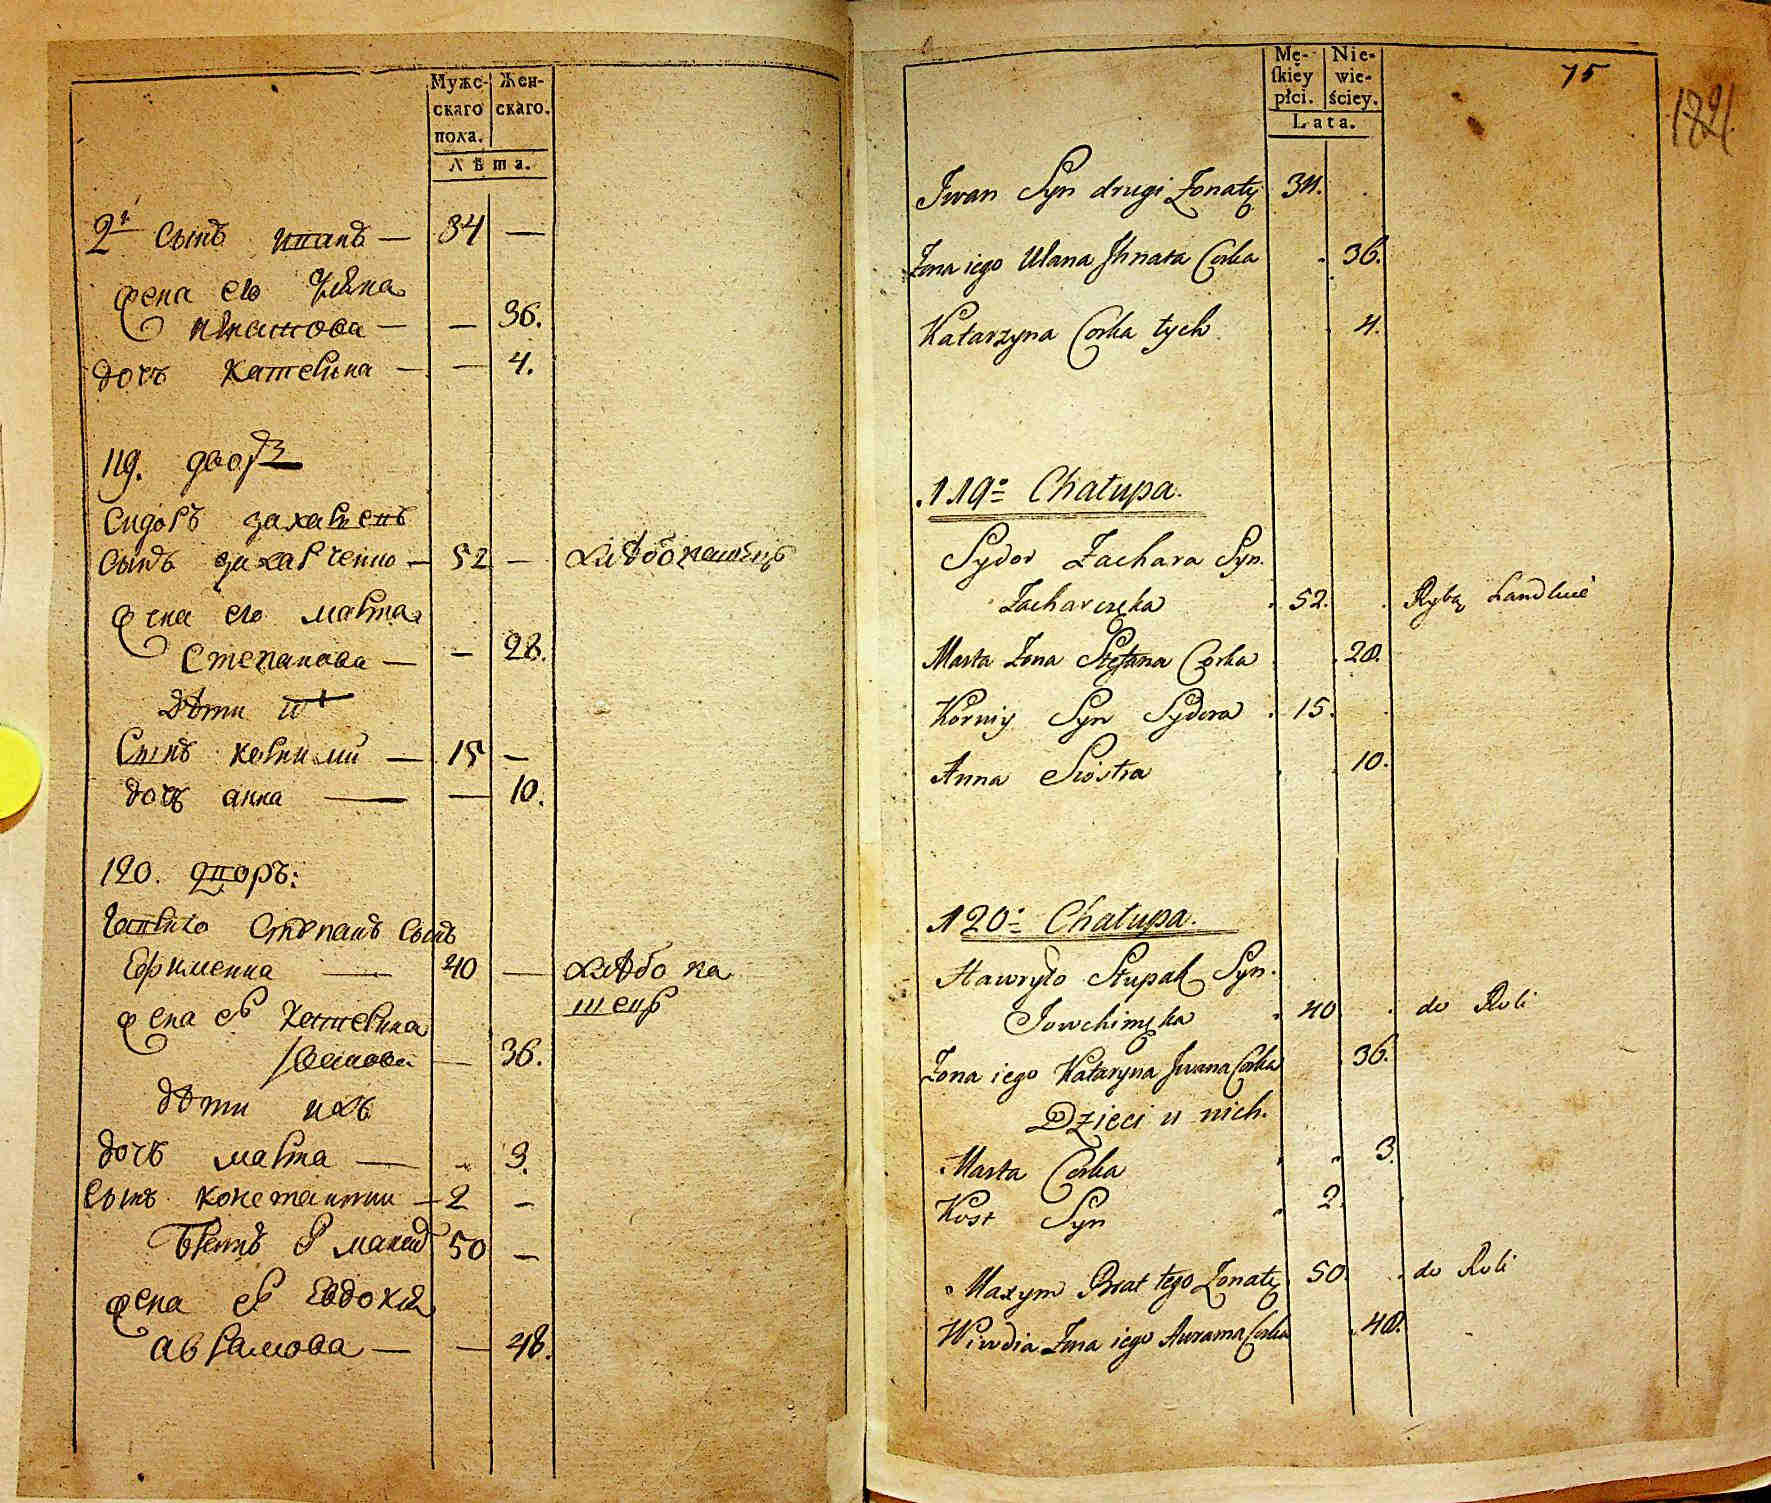 Мужс- Жен-
скаго скаго.
пола.
Лѣта.
2й сынъ иванъ — 34 —
жена его Уляна
игнатова — — 36.
дочь катерина — — 4.
119. дворъ
сидоръ захаренъ
сынъ захарченко — 52 — хлѣбопашецъ
жена его марта
Степанова — — 28.
дѣти ихъ
Сынъ корнилий — 15 —
дочь анна — — 10.
120. дворъ:
гаврило Степанъ сынъ
Ефименка — 40 — хлѣбопа
шецъ
жена ег катерина
иванова — 36.
дѣти ихъ
дочь марта — - 3.
сынъ константин — 2 —
братъ ег максим 50 —
жена ег Евдокия
аврамова — — 48.
Mę- Nie-
skiey wie-
płci. ściey.
Lata.
75
Iwan Syn drugi Żonaty 34.
Żona iego Ulana Ihnata Corka 36.
Katarzyna Corka tych 4.
119o Chałupa.
Sydor Zachara Syn.
Zacharczęka 52. Rybą handluie
Marta Żona Stefana Corka 28.
Korniy Syn Sydora 15.
Anna Siostra 10.
120o Chałupa.
Hawryło Stupak Syn.
Jowchimęka 40 do Roli
Żona iego Kataryna Iwana Corka 36.
Dzieci u nich.
Marta Corka 3.
Kost Syn 2.
Maxym Brat tego Żonaty 50. do Roli
Wiwdia Żona iego Awrama Corka 48.